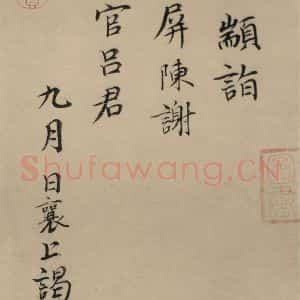 顓詣
屏陳謝
官呂君
九月日襄上謁
Shufawang.CN